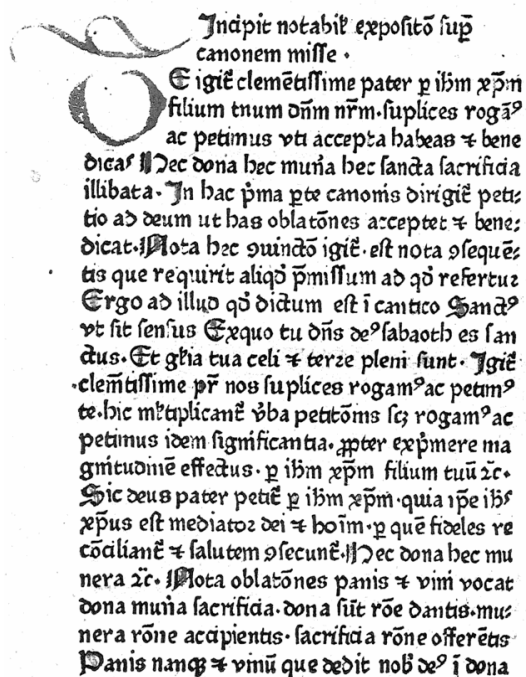 Incipit notabil̄ expositō sup̄
canonem misse ·
TE igit᷑ clemētissime pater ꝑ ihm̄ xp̄m
filium tuum dn̄m nr̄m·suplices rogamꝰ
ac petimus vti accepta habeas ⁊ bene
dicas Hec dona hec mun̄a hec sancta sacrificia
illibata· In hac p̄ma ꝑte canonis dirigit᷑ peti⸗
tio ad deum ut has oblatōnes acceptet ⁊ bene⸗
dicat·Nota hec ꝯiunctō igit᷑· est nota ꝯsequē⸗
tis que requirit aliqd̄ p̄missum ad qd̄ refertur
Ergo ad illud qd̄ dictum est ī cantico Sanctꝰ
vt sit sensus Exquo tu dn̄s deꝰ sabaoth es san
ctus·Et gl̄ia tua celi ⁊ terre pleni sunt· Igit᷑
clemētissime pr̄ nos suplices rogamꝰ ac petimꝰ
te·hic ml̄tiplicant᷑ v̄ba petitōnis scꝫ rogamꝰ ac
petimus idem significantia·ꝓpter exp̄mere ma
gnitudinē effectus·ꝑ ihm̄ xp̄m filium tuū ⁊c̄·
Sic deus pater petit᷑ ꝑ ihm̄ xp̄m·quia ip̄e ihs̄
xp̄us est mediator dei ⁊ hoīm·ꝑ quē fideles re
cōciliant᷑ ⁊ salutem ꝯsecunt᷑·Hec dona hec mu
nera ⁊c̄· Nota oblatōnes panis ⁊ vini vocat
dona mun̄a sacrificia·dona sūt rōe dantis·mu⸗
nera rōne accipientis·sacrificia rōne offerētis
Panis nanqꝫ ⁊ vinū que dedit nob̄ deꝰ ī dona